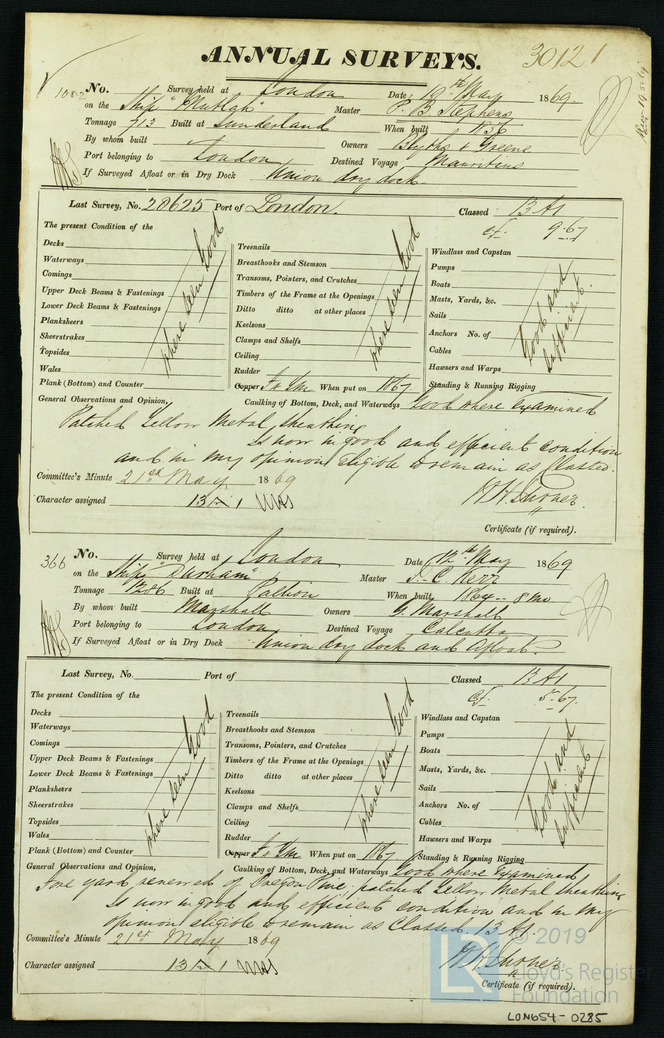 ANNUAL SURVEYS.
30121
No. Survey held at London Date 19th May 1869
on the Ship "Mutlah" Master P. B. Stephens
Tonnage 713 Built at Sunderland When built 1856
By whom built Owners Blyths & Greene
Port belonging to London Destined Voyage Mauritius
If Surveyed Afloat or in Dry Dock Union dry dock.
Last Survey, No. 28625 Port of London. Classed 13 A1
9.67
The present Condition of the
Decks
Waterways
Comings
Upper Deck Beams & Fastenings
Lower Deck Beams & Fastenings
Planksheers
Sheerstrakes
Topsides
Wales
Plank (Bottom) and Counter
where seen Good
Treenails
Breasthooks and Stemson
Transoms, Pointers, and Crutches
Timbers of the Frame at the Openings
Ditto ditto at other places
Keelsons
Clamps and Shelfs
Ceiling
Rudder
Copper When put on 1867
where seen Good
Windlass and Capstan
Pumps
Boats
Masts, Yards, &c.
Sails
Anchors No. of
Cables
Hawsers and Warps
Standing & Running Rigging
Good and sufficient.
General Observations and Opinion, Caulking of Bottom, Deck, and Waterways Good where examined
Patched Yellow Metal sheathing
Is now in good and efficient condition
and in my opinion eligible to remain as Classed.
Committee's Minute 21st May 1869
Character assigned 13 A 1
Certificate (if required).
366
No. Survey held at London Date 12th May 1869
on the Ship "Durham" Master J. C. Kerr
Tonnage 1286 Built at Pallion When built 8 Mo
By whom built Marshall Owners G. Marshall
Port belonging to London Destined Voyage Calcutta
If Surveyed Afloat or in Dry Dock Union dry dock and Afloat.
Last Survey, No. Port of Classed 13 A1
5.67
The present Condition of the
Decks
Waterways
Comings
Upper Deck Beams & Fastenings
Lower Deck Beams & Fastenings
Planksheers
Sheerstrakes
Topsides
Wales
Plank (Bottom) and Counter
where seen Good
Treenails
Breasthooks and Stemson
Transoms, Pointers, and Crutches
Timbers of the Frame at the Openings
Ditto ditto at other places
Keelsons
Clamps and Shelfs
Ceiling
Rudder
Copper When put on 1867
where seen Good
Windlass and Capstan
Pumps
Boats
Masts, Yards, &c.
Sails
Anchors No. of
Cables
Hawsers and Warps
Standing & Running Rigging
Good and sufficient
General Observations and Opinion, Caulking of Bottom, Deck, and Waterways Good where Examined
Fore yard renewed of Oregon Pine, patched Yellow Metal sheathing
Is now in good and efficient condition and in my
opinion eligible to remain as Classed 13 A1.
Committee's Minute 21st May 1869
Character assigned 13 A 1
Certificate (if required).
© 2019
Lloyd's Register
Foundation
LON654-0285